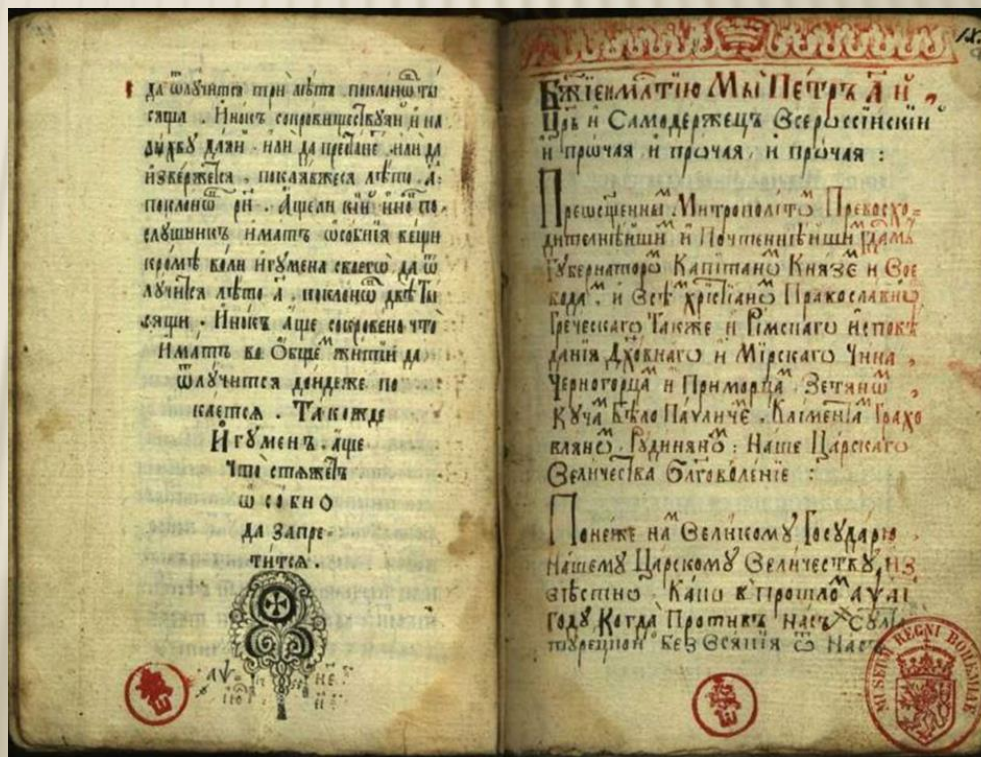 да ѿлꙋчитсѧ три лѣта. поклонѡ ты
сѧща. Инокъ сокровиществꙋѧй и на
лихвꙋ даѧй. или да престане или да
извержетсѧ. покаѧвжесѧ лѣто. а҃.
поклонѡ рн. Аще ли кїй ино по-
слꙋшникъ имать ѡсобнїѧ вещи
кромѣ воли игꙋмена своегѡ да ѿ
лꙋчитсѧ лѣто а҃. поклонѡ двѣ ты
сѧщи. Инокъ аще сокровено что
имать во ѻбще житїи да
ѿлꙋчитсѧ дондеже по
каетсѧ. Такожде
Игꙋменъ. аще
что стѧжетъ
ѡсобно
да запре-
титсѧ.
Бж҃їею млⷭтїю Мы Петръ А҃ й,
Цр҃ь и Самодержецъ Всероссїискїи
и прѡчая и прѡчая, и прѡчая:
Преѡсщ҃енны Митрополитѡ Превосхо-
дителнѣйши и Почтеннѣйши Гдⷭамъ
Гꙋбернаторѡ Капїтанѡ Кнѧзе и Вое
вода, и Всѣ хрⷭтїанѡ Православнѡ
Греческагѡ Также и Римскагѡ исповѣ
данїѧ Дх҃овнагѡ и Мїрскагѡ Чина,
Черногорца и Приморца. Зетѧнѡ,
Кꙋча Бѣло Павличе. Клїментїа Грахо
влѧнѡ. Рꙋдинѧнѡ: Наше Царскагѡ
Величества Бл҃говоленїе:
Понеже на Великомꙋ Государю
Нашемꙋ Царскомꙋ Величествꙋ, из
вѣстно. Како в прошло а҂ѱаі
годꙋ Когда Противъ насъ Сꙋлта
тꙋрецкой без всѧкїѧ ѿ насъ
MUSEUM REGNI BOHEMIAE